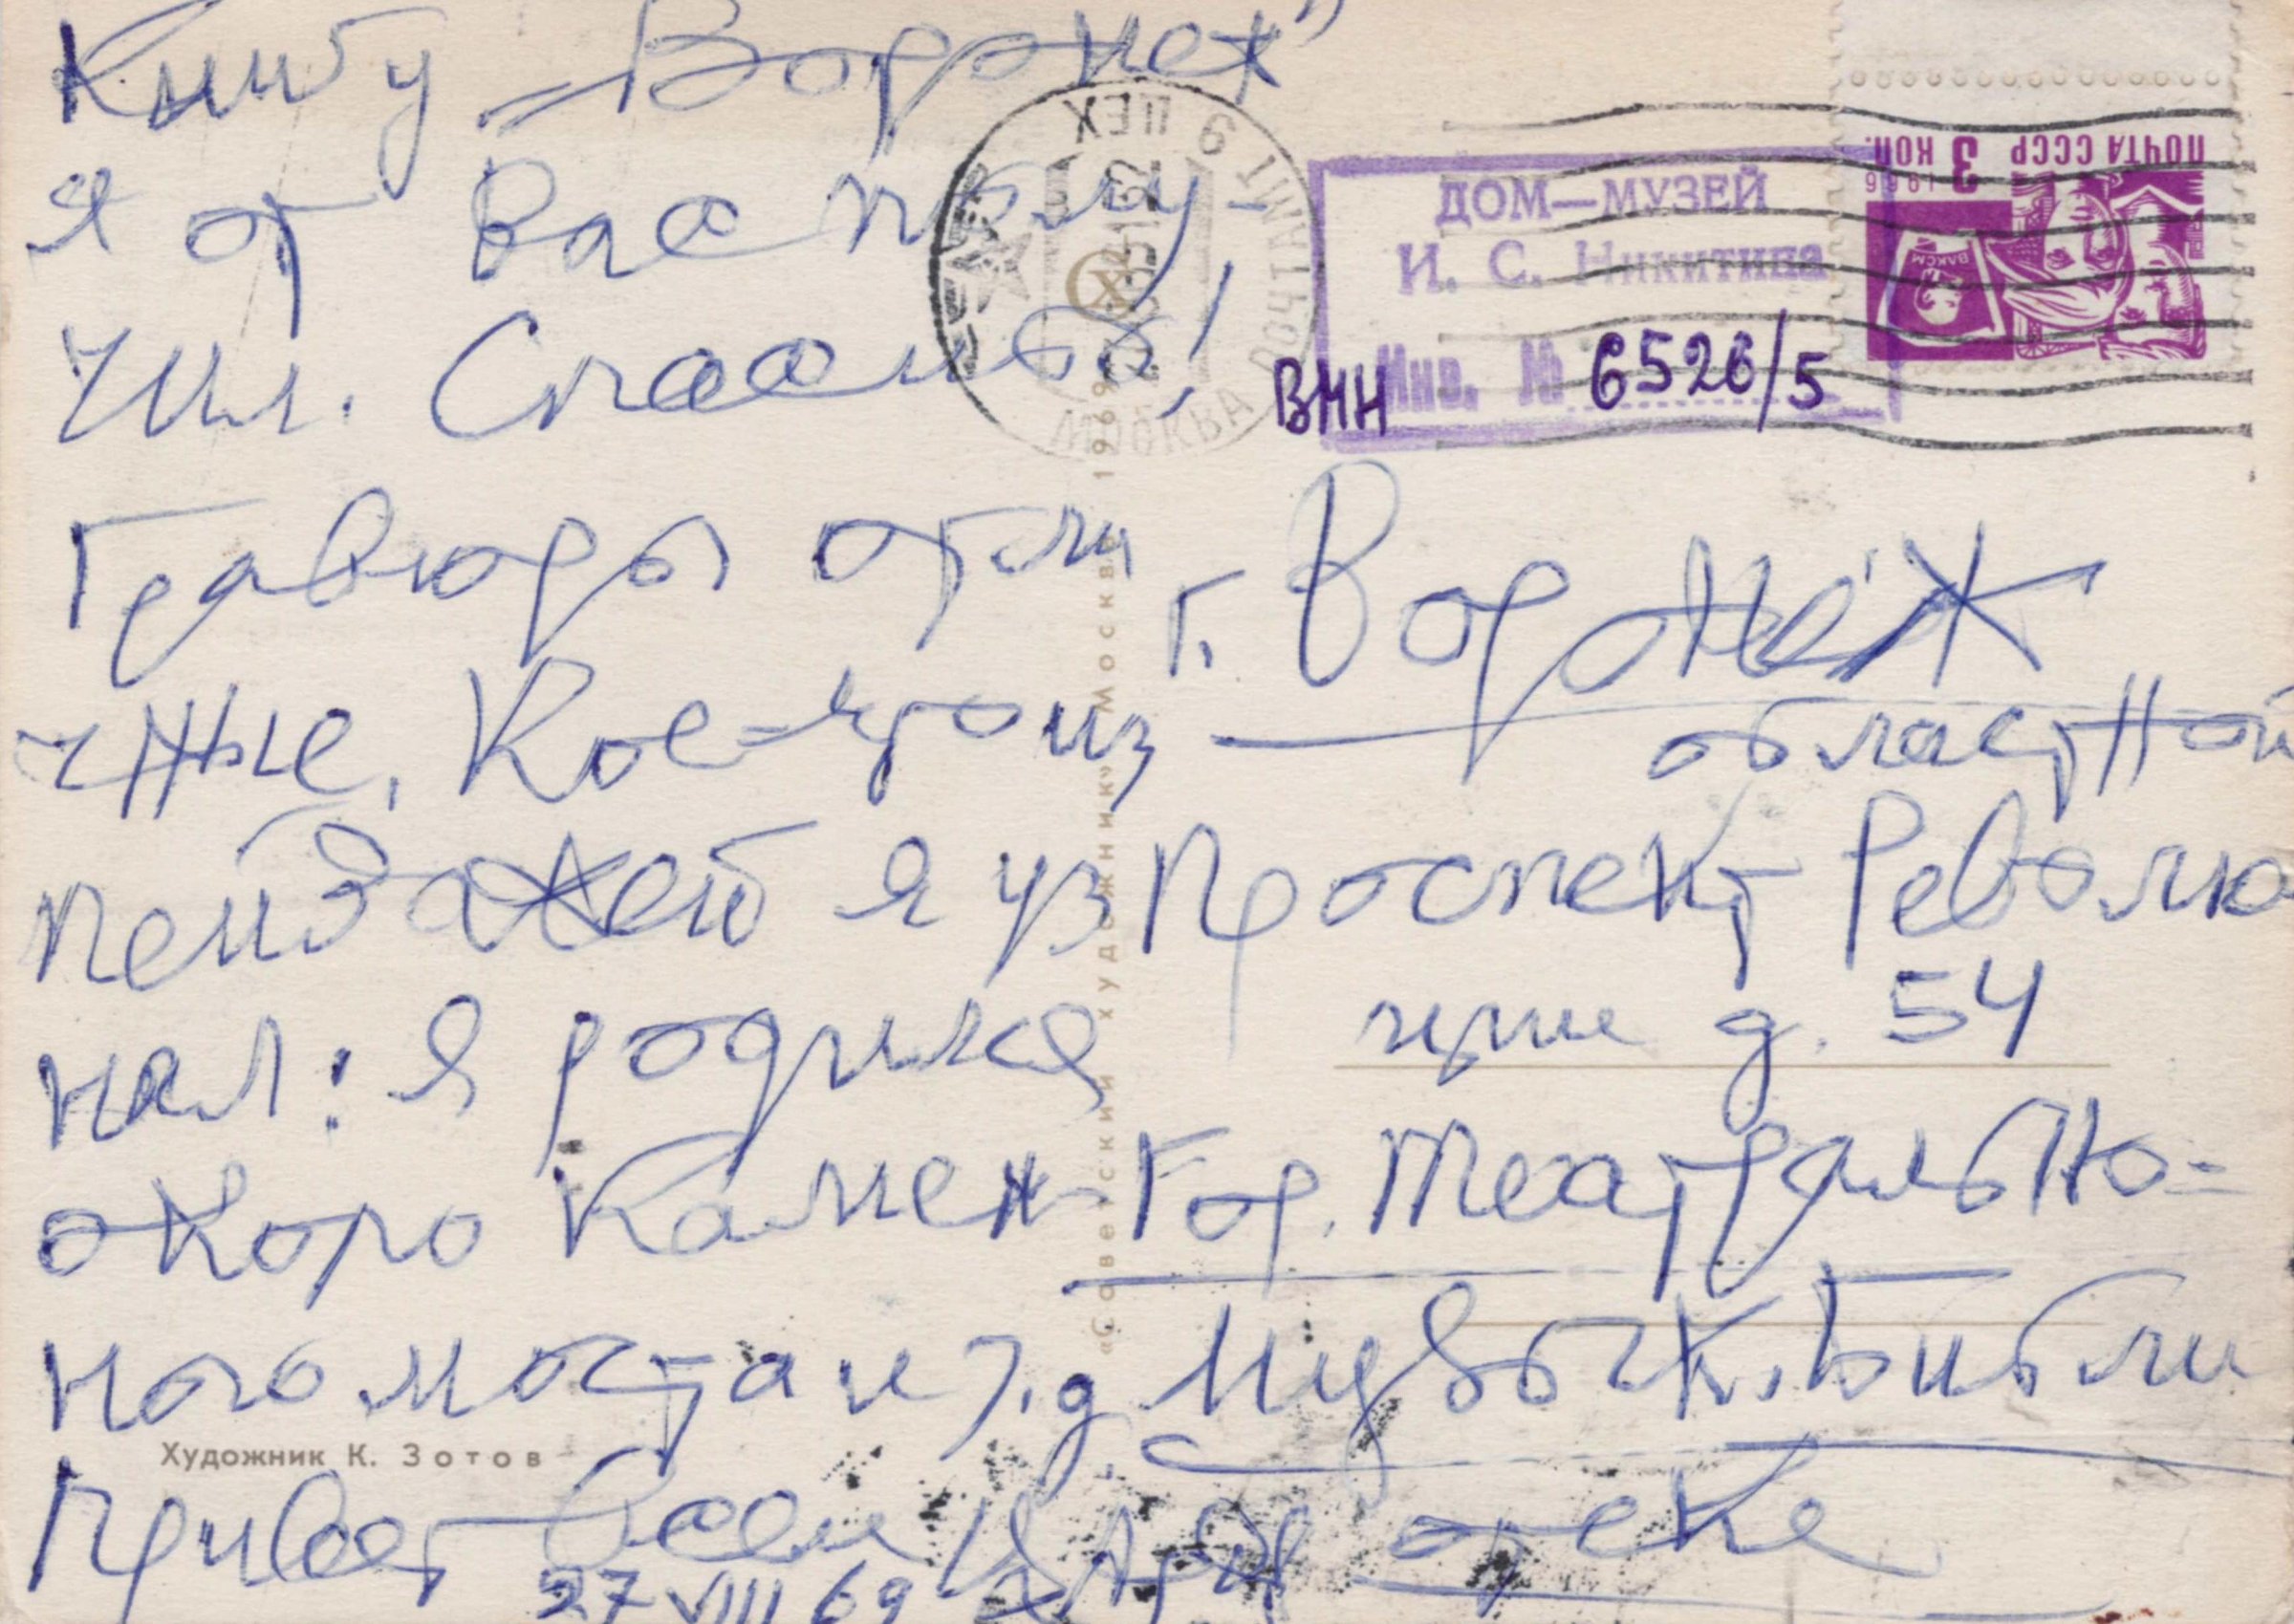 Книгу „Воронеж"
я от Вас полу-
чил. Спасибо!
Гравюры отли
чные. Кое-что из
пейзажей я уз
нал: я родился
около Камен-
ного моста и т.д
Привет Всем
27 VIII 69
ПОЧТА СССР 3 КОП.
1966
ВЛКСМ
МОСКВА ПОЧТАМТ 9 ЦЕХ
ДОМ—МУЗЕЙ
И. С. Никитина
ВМН Инв. № 6526/5
г. Воронеж
областной
Проспект Револю
ции д. 54
Гор. Театрально=
музык. Библи
отеке
«Советский художник» Москва 1969
Художник К. Зотов